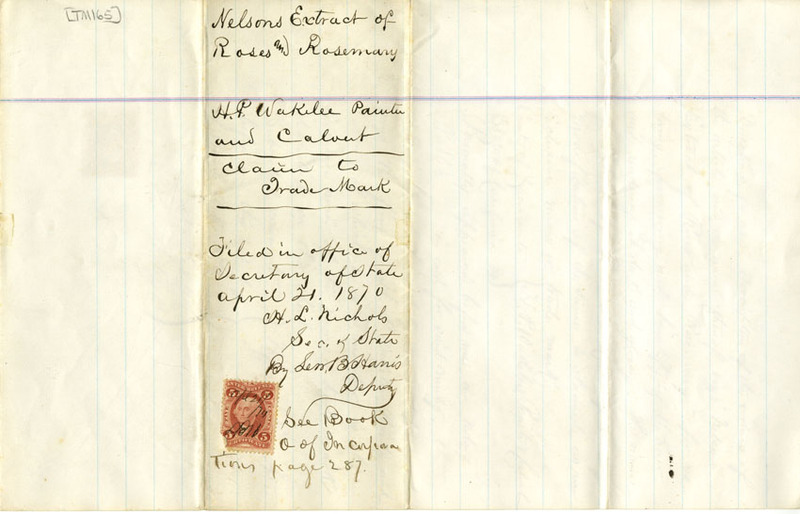 [TM165]
Nelsons Extract of
Roses and Rosemary
H.P. Wakelee Painter
and Calvert
Claim to
Trade Mark
Filed in office of
Secretary of State
april 21. 1870
H. L. Nichols
Sec. of State
By Lew. B Harris
Deputy
See Book
O of Incorpora
tions page 287.
5
5